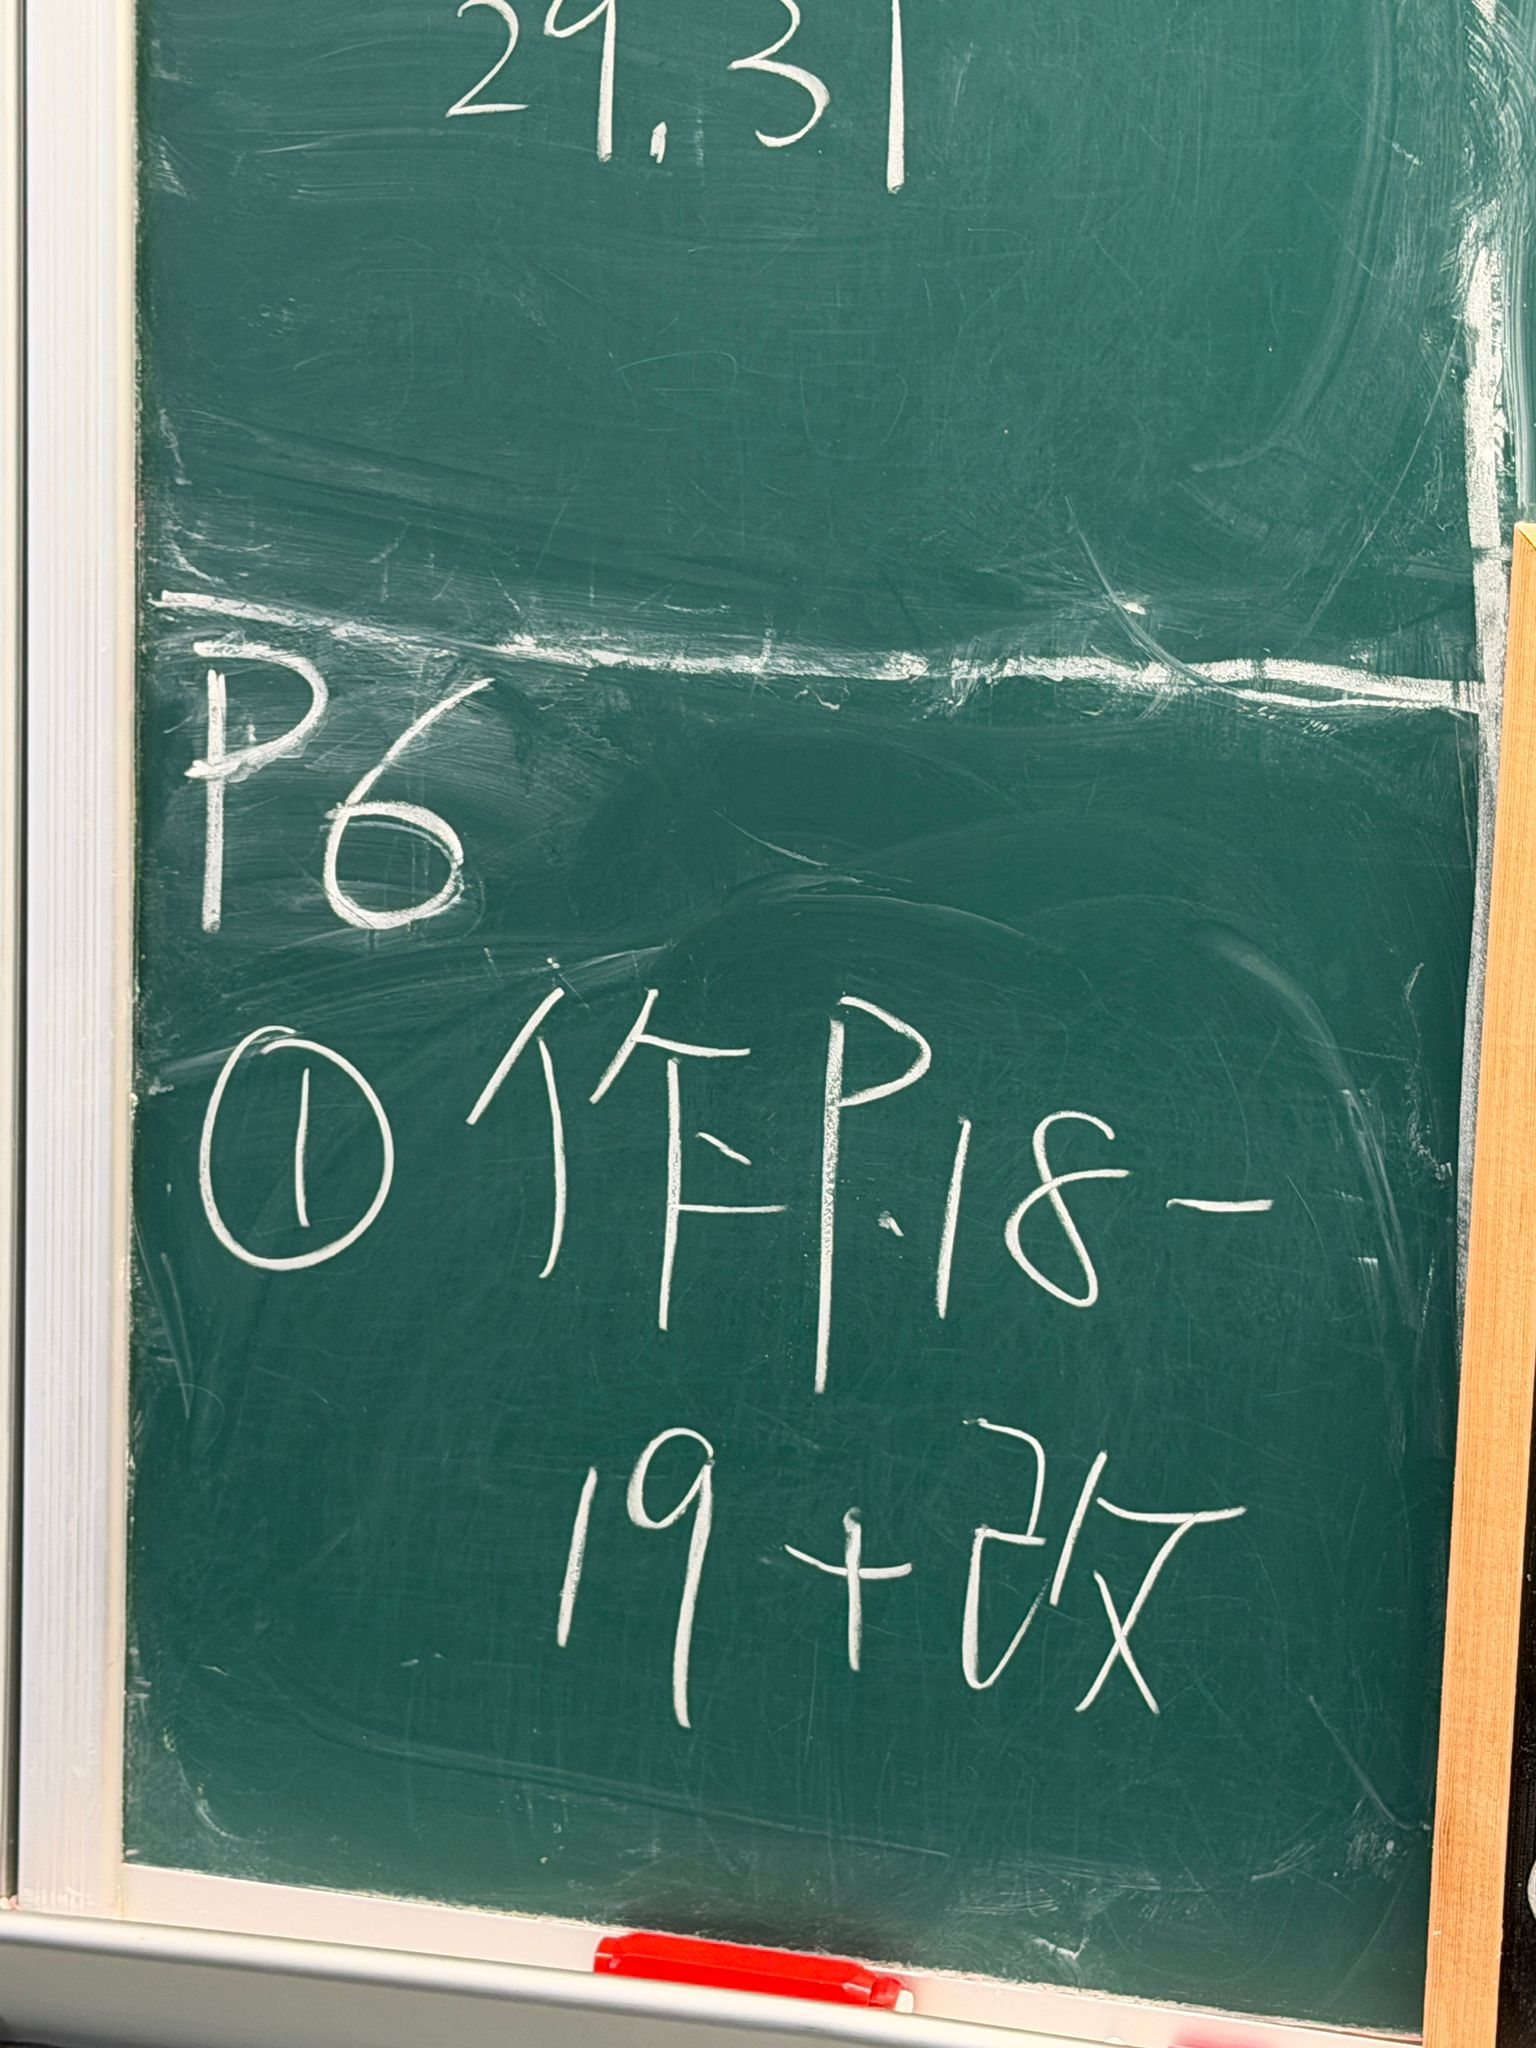 29.31
P6
① 作P.18-
19+改